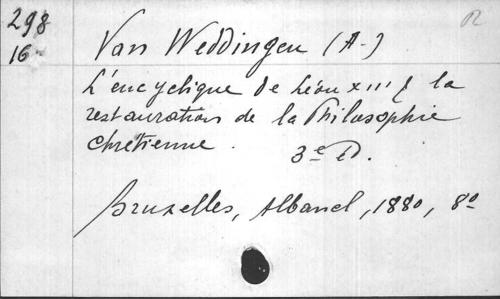 298
16
Van Weddingen (A.)
L'encyclique de Léon XIII & la
restauration de la Philosophie
chrétienne. 3e Ed.
Bruxelles, Albanel, 1880, 8o